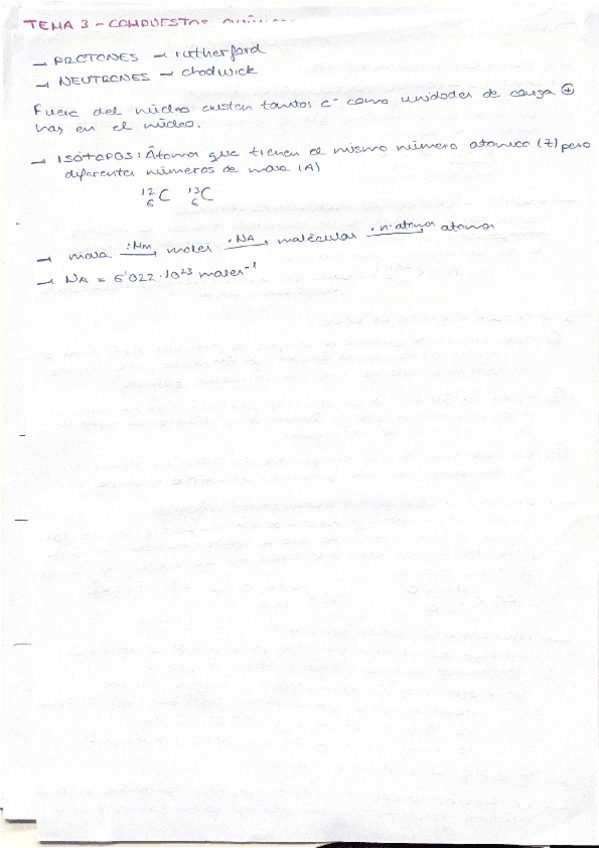 TEMA 3 - COMPUESTOS
→ PROTONES → rutherford
→ NEUTRONES → chadwick
Fuera del núcleo existen tantos e⁻ como unidades de carga ⊕
hay en el núcleo.
→ ISÓTOPOS: Átomos que tienen el mismo número atómico (Z) pero
diferentes números de masa (A)
¹²₆C ¹³₆C
→ masa :Mm→ moles ·NA→ moléculas ·nºátomos→ átomos
→ NA = 6'022·10²³ moles⁻¹